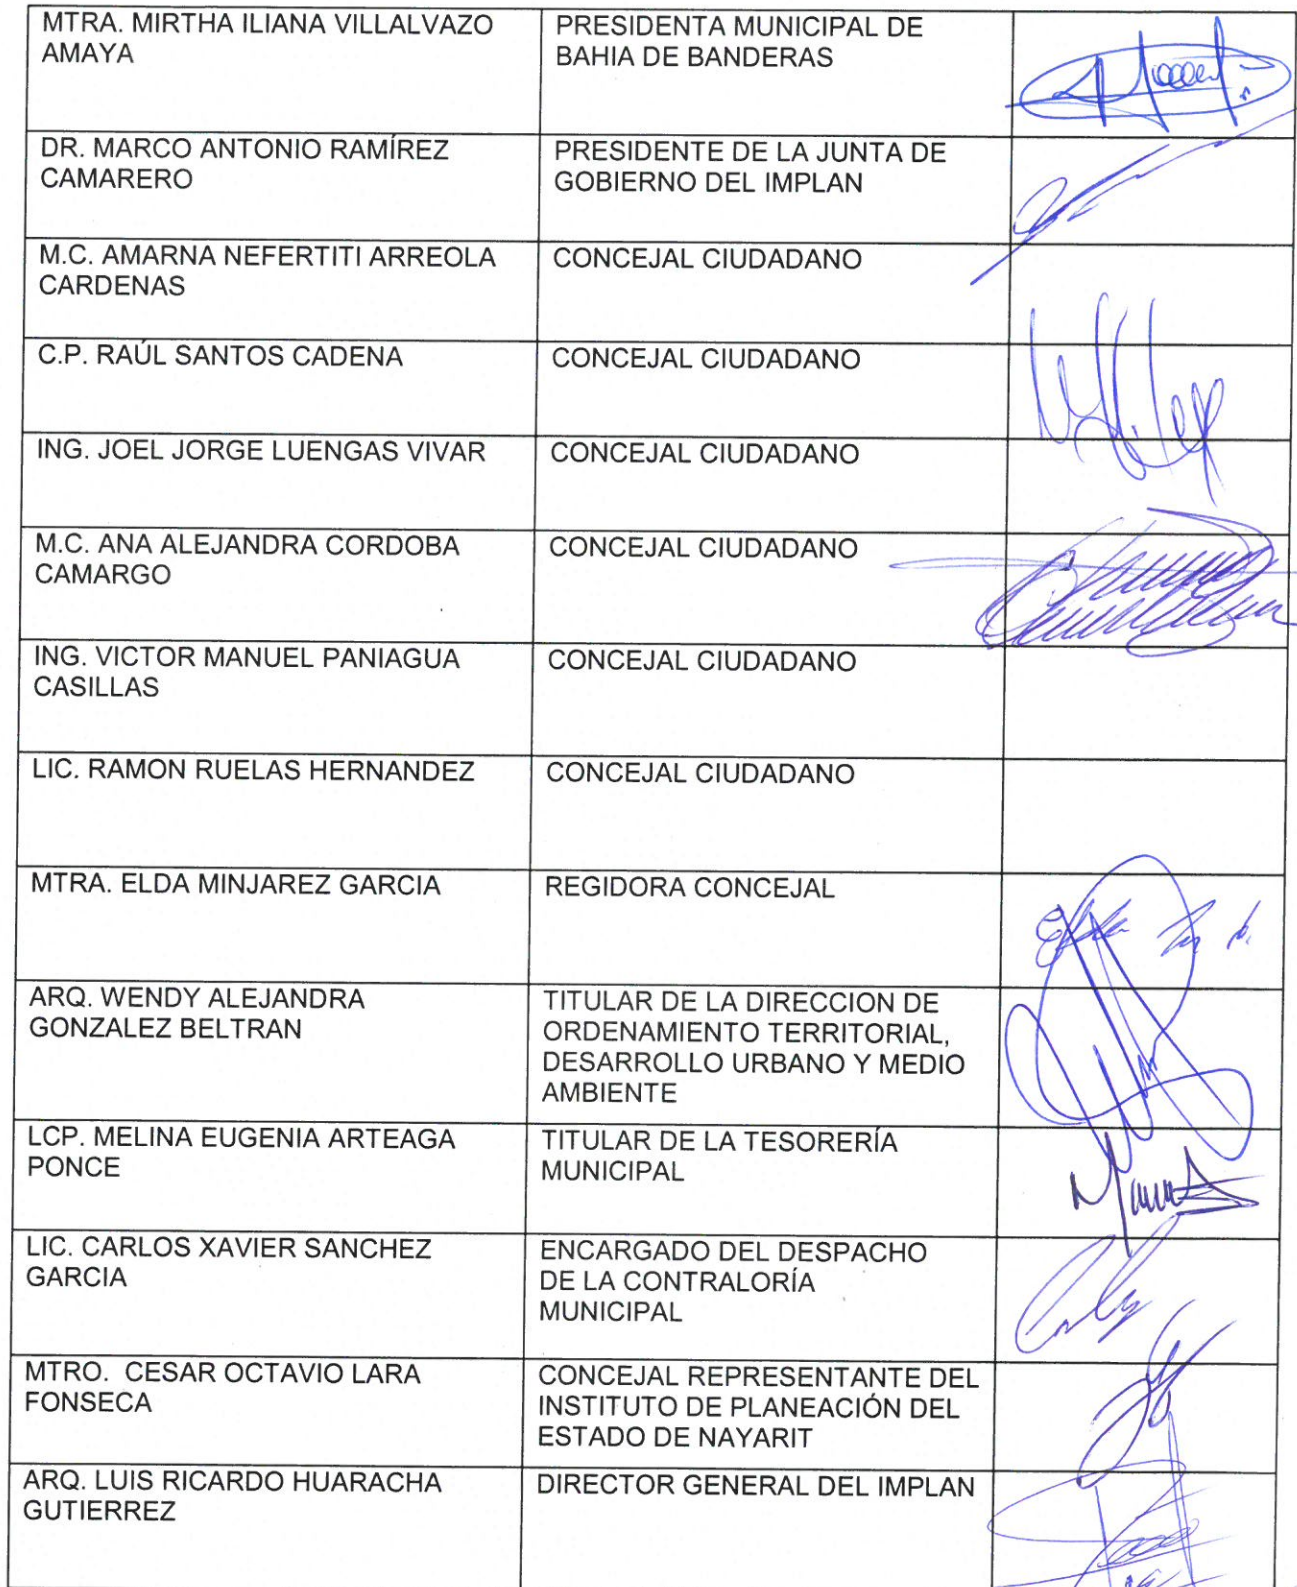 MTRA. MIRTHA ILIANA VILLALVAZO
AMAYA
PRESIDENTA MUNICIPAL DE
BAHIA DE BANDERAS
DR. MARCO ANTONIO RAMÍREZ
CAMARERO
PRESIDENTE DE LA JUNTA DE
GOBIERNO DEL IMPLAN
M.C. AMARNA NEFERTITI ARREOLA
CARDENAS
CONCEJAL CIUDADANO
C.P. RAÚL SANTOS CADENA
CONCEJAL CIUDADANO
ING. JOEL JORGE LUENGAS VIVAR
CONCEJAL CIUDADANO
M.C. ANA ALEJANDRA CORDOBA
CAMARGO
CONCEJAL CIUDADANO
ING. VICTOR MANUEL PANIAGUA
CASILLAS
CONCEJAL CIUDADANO
LIC. RAMON RUELAS HERNANDEZ
CONCEJAL CIUDADANO
MTRA. ELDA MINJAREZ GARCIA
REGIDORA CONCEJAL
ARQ. WENDY ALEJANDRA
GONZALEZ BELTRAN
TITULAR DE LA DIRECCION DE
ORDENAMIENTO TERRITORIAL,
DESARROLLO URBANO Y MEDIO
AMBIENTE
LCP. MELINA EUGENIA ARTEAGA
PONCE
TITULAR DE LA TESORERÍA
MUNICIPAL
LIC. CARLOS XAVIER SANCHEZ
GARCIA
ENCARGADO DEL DESPACHO
DE LA CONTRALORÍA
MUNICIPAL
MTRO. CESAR OCTAVIO LARA
FONSECA
CONCEJAL REPRESENTANTE DEL
INSTITUTO DE PLANEACIÓN DEL
ESTADO DE NAYARIT
ARQ. LUIS RICARDO HUARACHA
GUTIERREZ
DIRECTOR GENERAL DEL IMPLAN